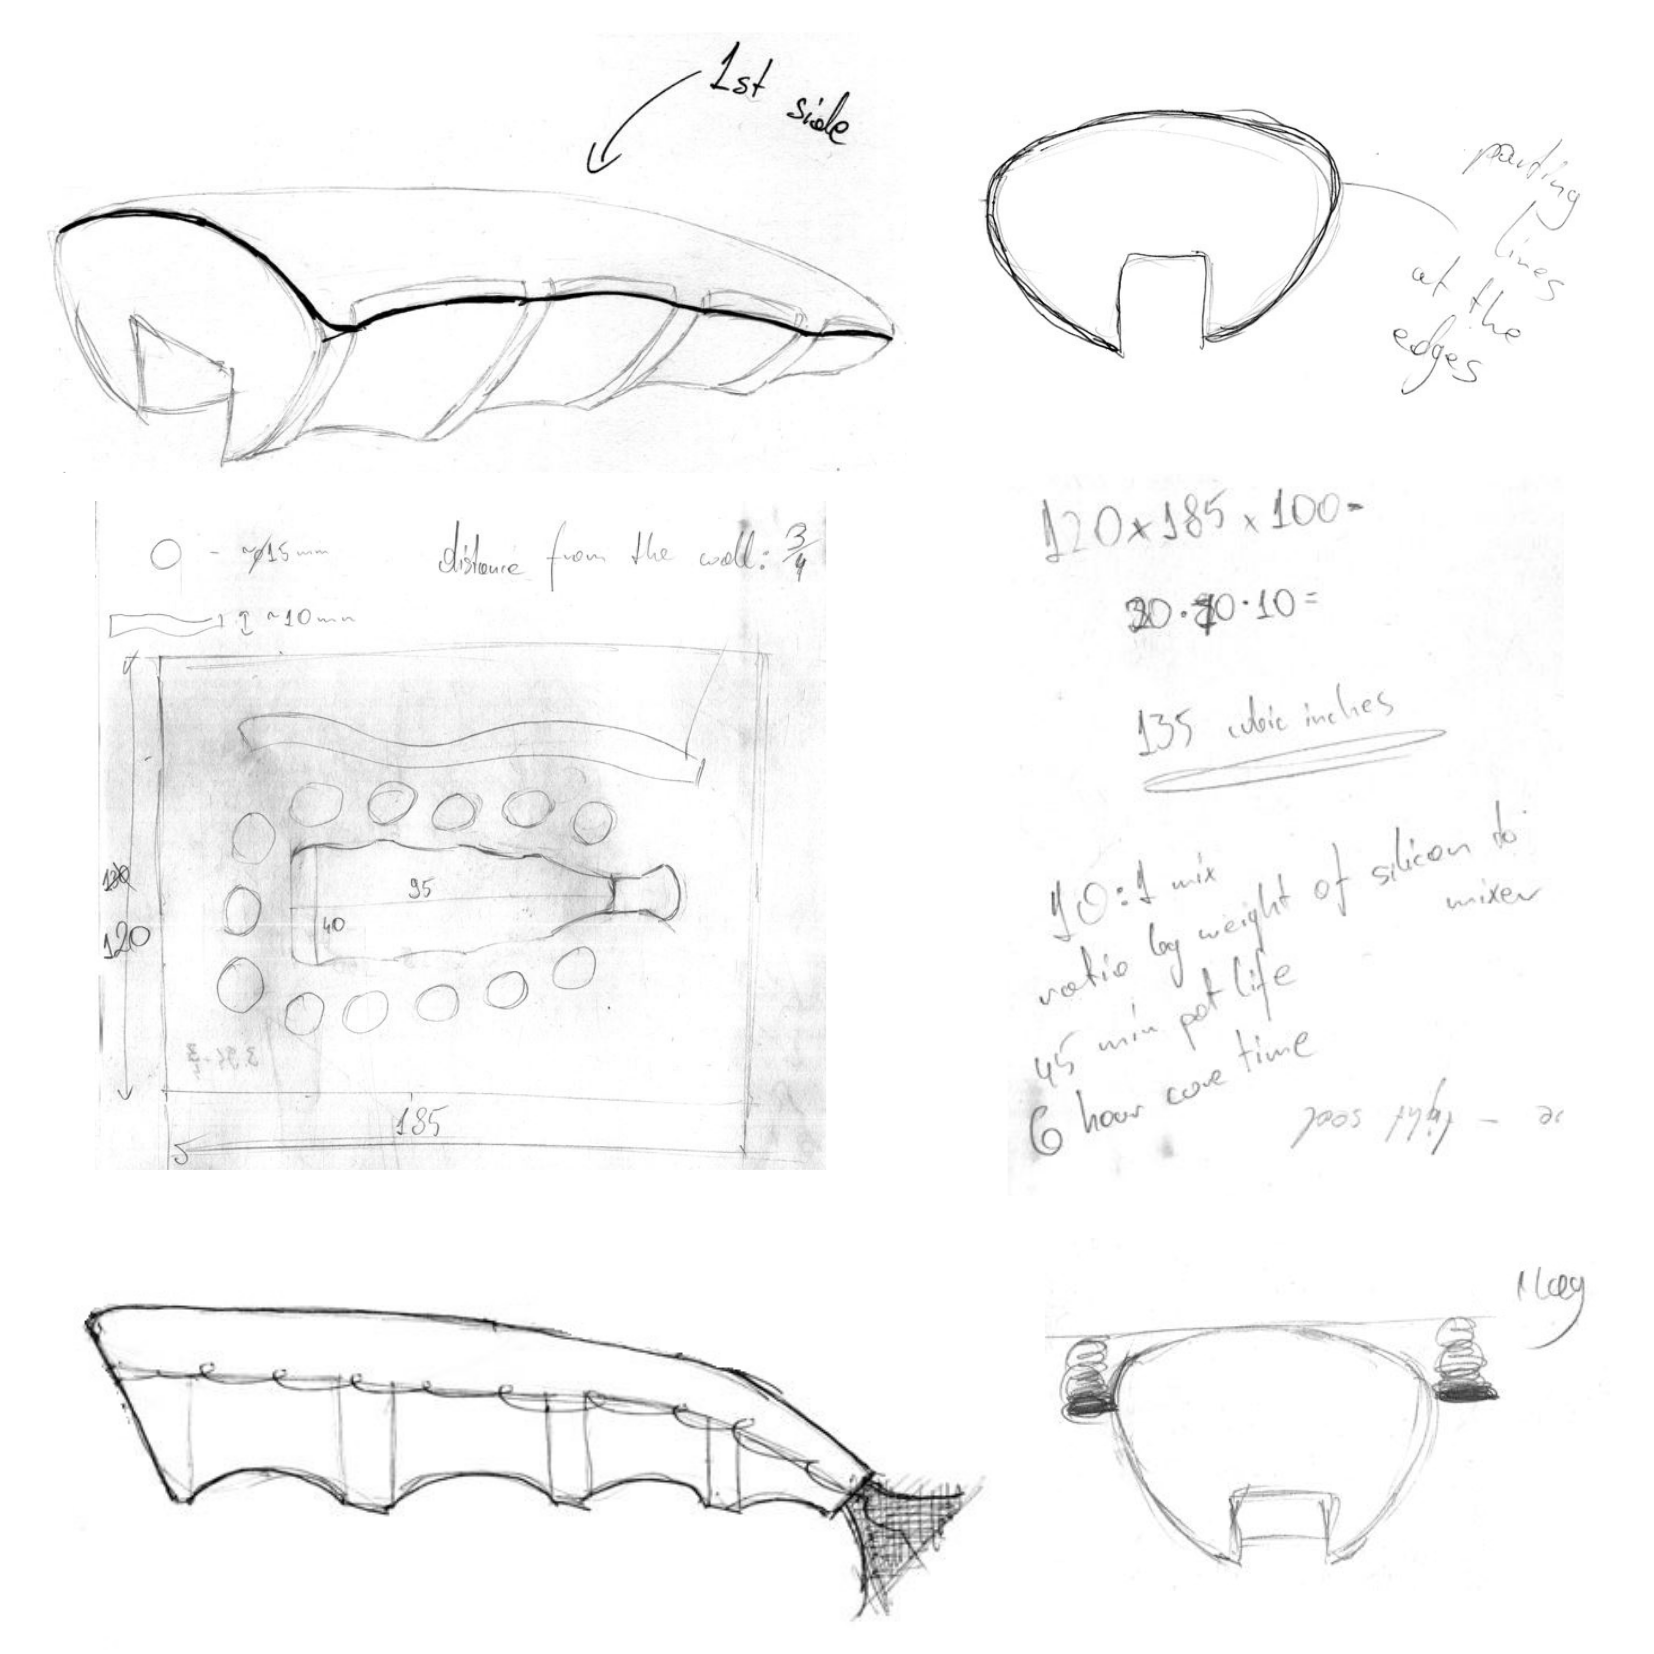 1st
side
parting
lines
at the
edges
- ~ø15mm
distance from the wall: 3/4
~10mm
95
40
120
185
120x185x100=
135 cubic inches
10:1 mix
ratio by weight of silicon to
mixer
45 min pot life
6 hour core time